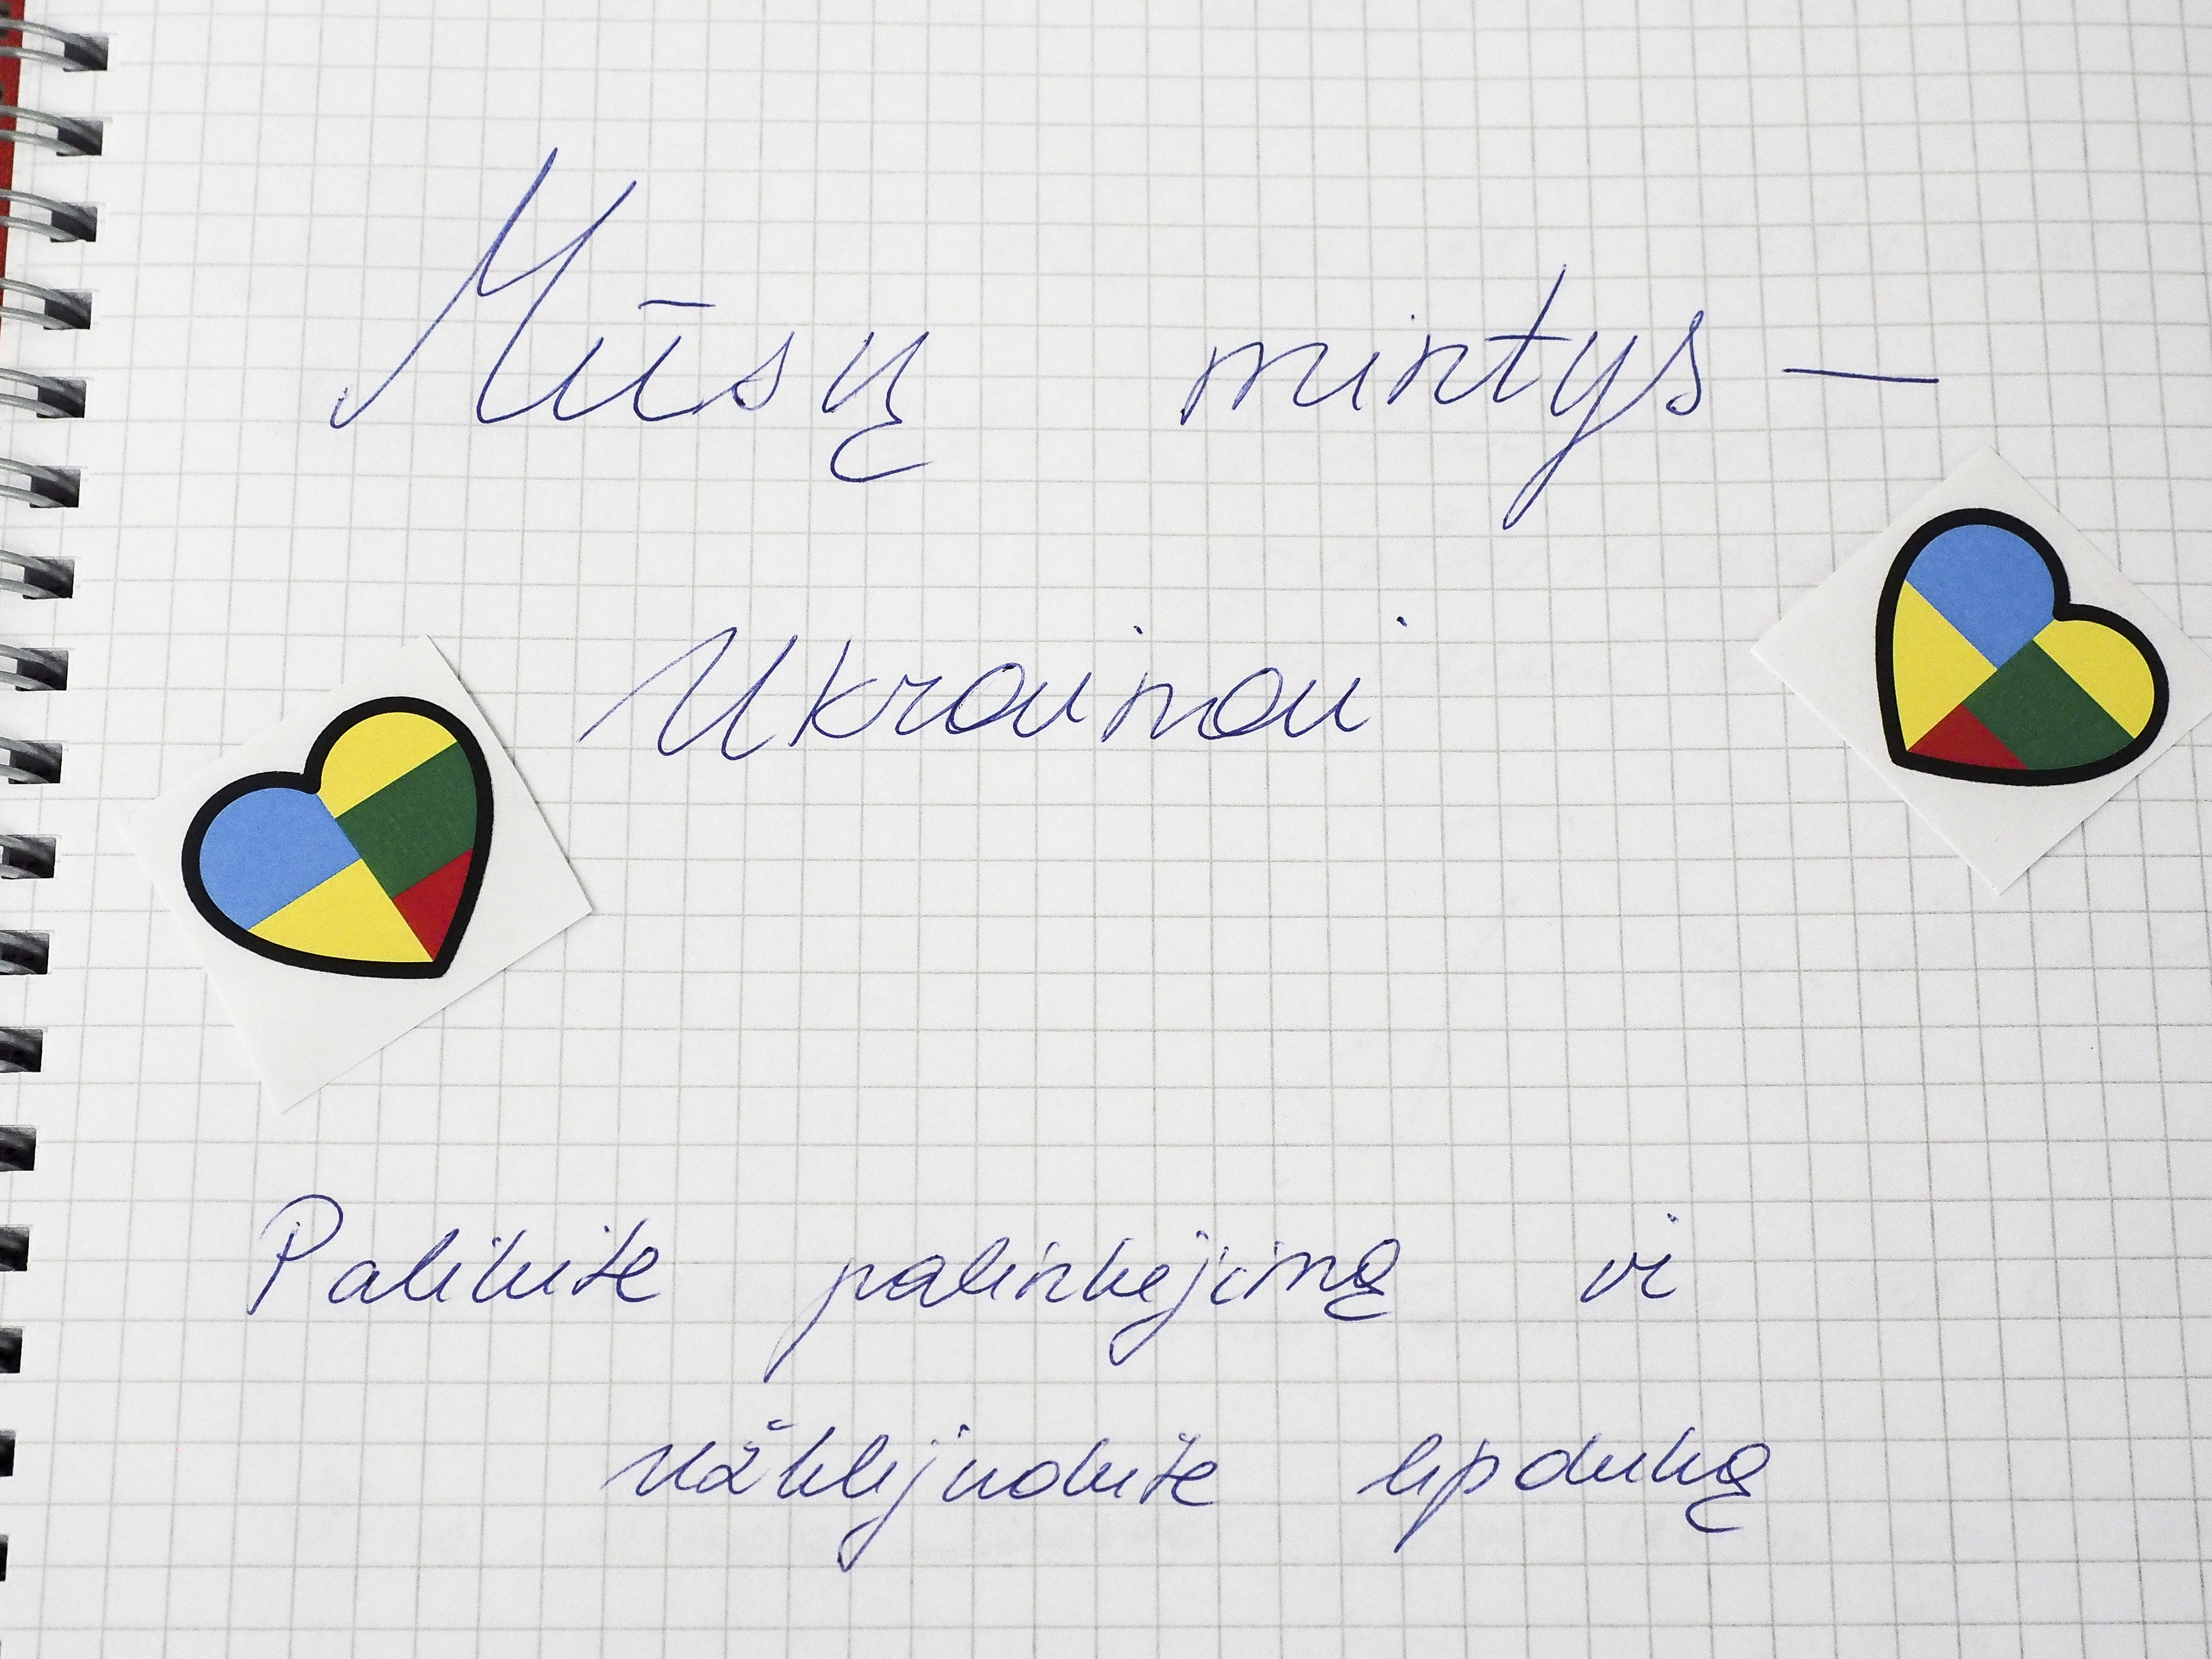 Mūsų mintys —
Ukrainai
Palikite palinkėjimą ir
užklijuokite lipduką